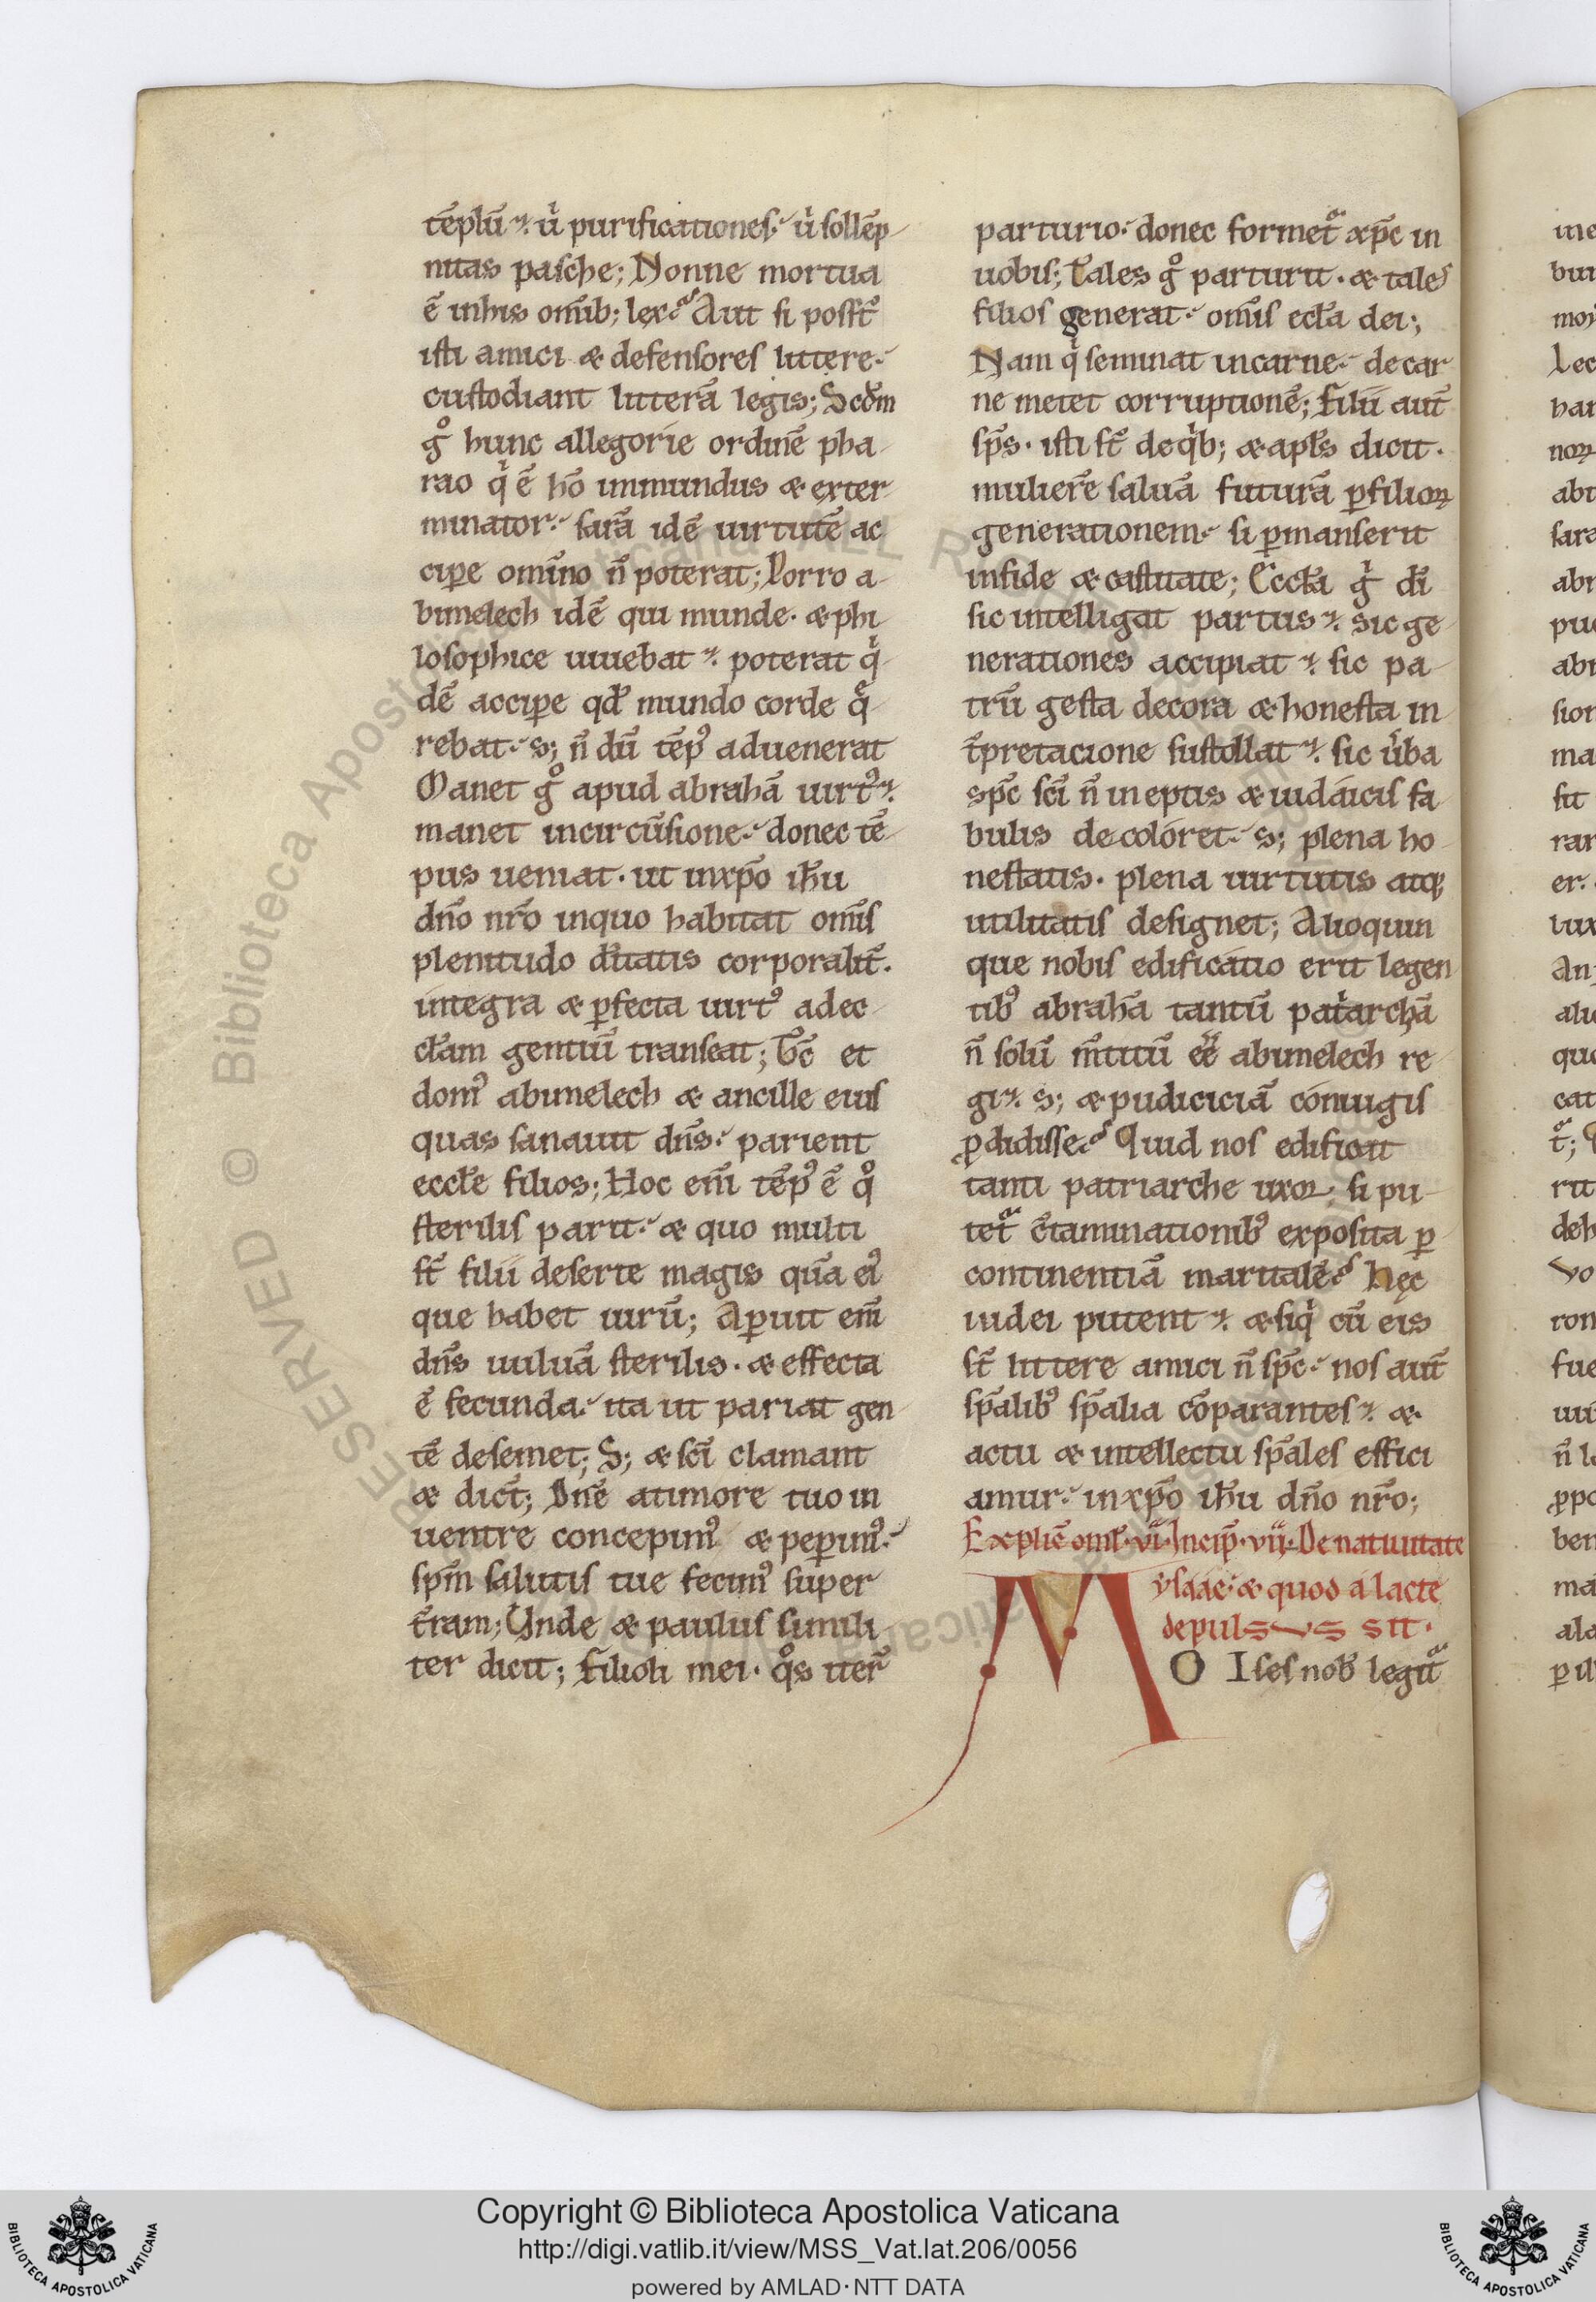 te̅plu̅ ⁊. uͥ purificationeſ. uͥ ſolle̅p
nitas paſche; Nonne mortua
e̅ inhis om̅ib; lex. Aut ſi poſſt̅
iſti amici æ defenſoreſ littere.
cuſtodiant littera̅ legis; Scd̅m
gͦ hunc allegorie ordine̅ pha
rao qͥ e̅ ho̅ immundus æ exter
minator. ſara̅ ide̅ uirtute̅ ac
cipe̅ omi̅no n̅ poterat; Porro a
bimelech ide̅ qui munde. æ phi
loſophice uiuebat ⁊. poterat qͥ
de̅ accipe̅ qd̅ mundo corde qͣ
rebat. s; n̅ du̅ te̅pꝰ aduenerat
Manet gͦ apud abraha̅ uirtꝰ ⁊.
manet incircu̅ſione. donec te̅
pus ueniat. ut inxp̅o ih̅u
dn̅o nr̅o inquo habitat om̅iſ
plenitudo di̅tatis corporalit̅.
integra æ ꝑfecta uirtꝰ adec
cl̅am gentiu̅ tranſeat; Tc̅ et
domꝰ abimelech æ ancille eiuſ
quas ſanauit dn̅s. parient
eccl̅e filios; Hoc eni̅ te̅pꝰ e̅ qͦ
ſterilis parit. æ quo multi
ſt̅ filii deſerte magis qua̅ eiꝰ
que habet uiru̅; Aꝑuit eni̅
dn̅s uulua̅ ſterilis. æ effecta
e̅ fecunda. ita ut pariat gen
te̅ deſemet; S; æ ſci̅ clamant
æ dict̅; Dn̅e atimore tuo in
uentre concepimꝰ æ peꝑimꝰ.
ſpm̅ ſalutiſ tue fecimꝰ ſuper
t̅ram; Unde æ pauluſ ſimili
ter dicit; Filioli mei. qͦs iter̅
parturio. donec formet̅ xp̅c in
uobiſ; Tales gͦ parturit. æ taleſ
filioſ generat. om̅iſ eccl̅a dei;
Nam qͥ ſeminat incarne. decar
ne metet corruptione̅; Filii aut̅
ſp̅s. iſti ſt̅ deqͥb; æ apl̅s dicit.
muliere̅ ſalua̅ futura̅ ꝑfilioꝝ
generationem. ſi ꝑmanſerit
infide æ caſtitate; Eccl̅a gͥ di̅
ſic intelligat partus ⁊. sic ge
nerationes accipiat ⁊. ſic pa
tru̅ geſta decora æ honeſta in
t̅pretacione ſuſtollat ⁊. ſic uͥba
ſpc̅ ſci̅ n̅ ineptis æ iudáiciſ fa
bulis decoloret. s; plena ho
neſtatis. plena uirtutis atq;
utilitatiſ deſignet; Alioquin
que nobiſ edificatio erit legen
tibꝰ abraha̅ tantu̅ patͥarcha̅
n̅ ſolu̅ m̅titu̅ ee̅ abimelech re
gi ⁊. s; æ pudicicia̅ coniugiſ
ꝓdidiſſe. Quid noſ edificat
tanti patriarche uxor. ſi pu
tet̅ c̅taminationibꝰ expoſita ꝑ
continentia̅ maritale̅. Hęc
iudei putent ⁊. æ ſiqͥ cu̅ eis
ſt̅ littere amici n̅ ſpc̅. noſ aut̅
ſp̅alibꝰ ſp̅alia co̅paranteſ ⁊. æ
actu æ intellectu ſp̅aleſ effici
amur. inxp̅o ih̅u dn̅o nr̅o;
Explic̅ oml̅. vi. Incip̅. vii. De natiuitate
yſáác. æ quod á lacte
depulsus sit.
MO Iſeſ nob̅ legit̅
Copyright © Biblioteca Apostolica Vaticana
http://digi.vatlib.it/view/MSS_Vat.lat.206/0056
powered by AMLAD·NTT DATA
BIBLIOTECA APOSTOLICA VATICANA
BIBLIOTECA APOSTOLICA VATICANA